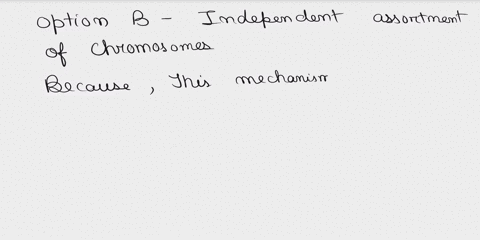 option B - Independent assortment
of Chromosomes
Because , This mechanism